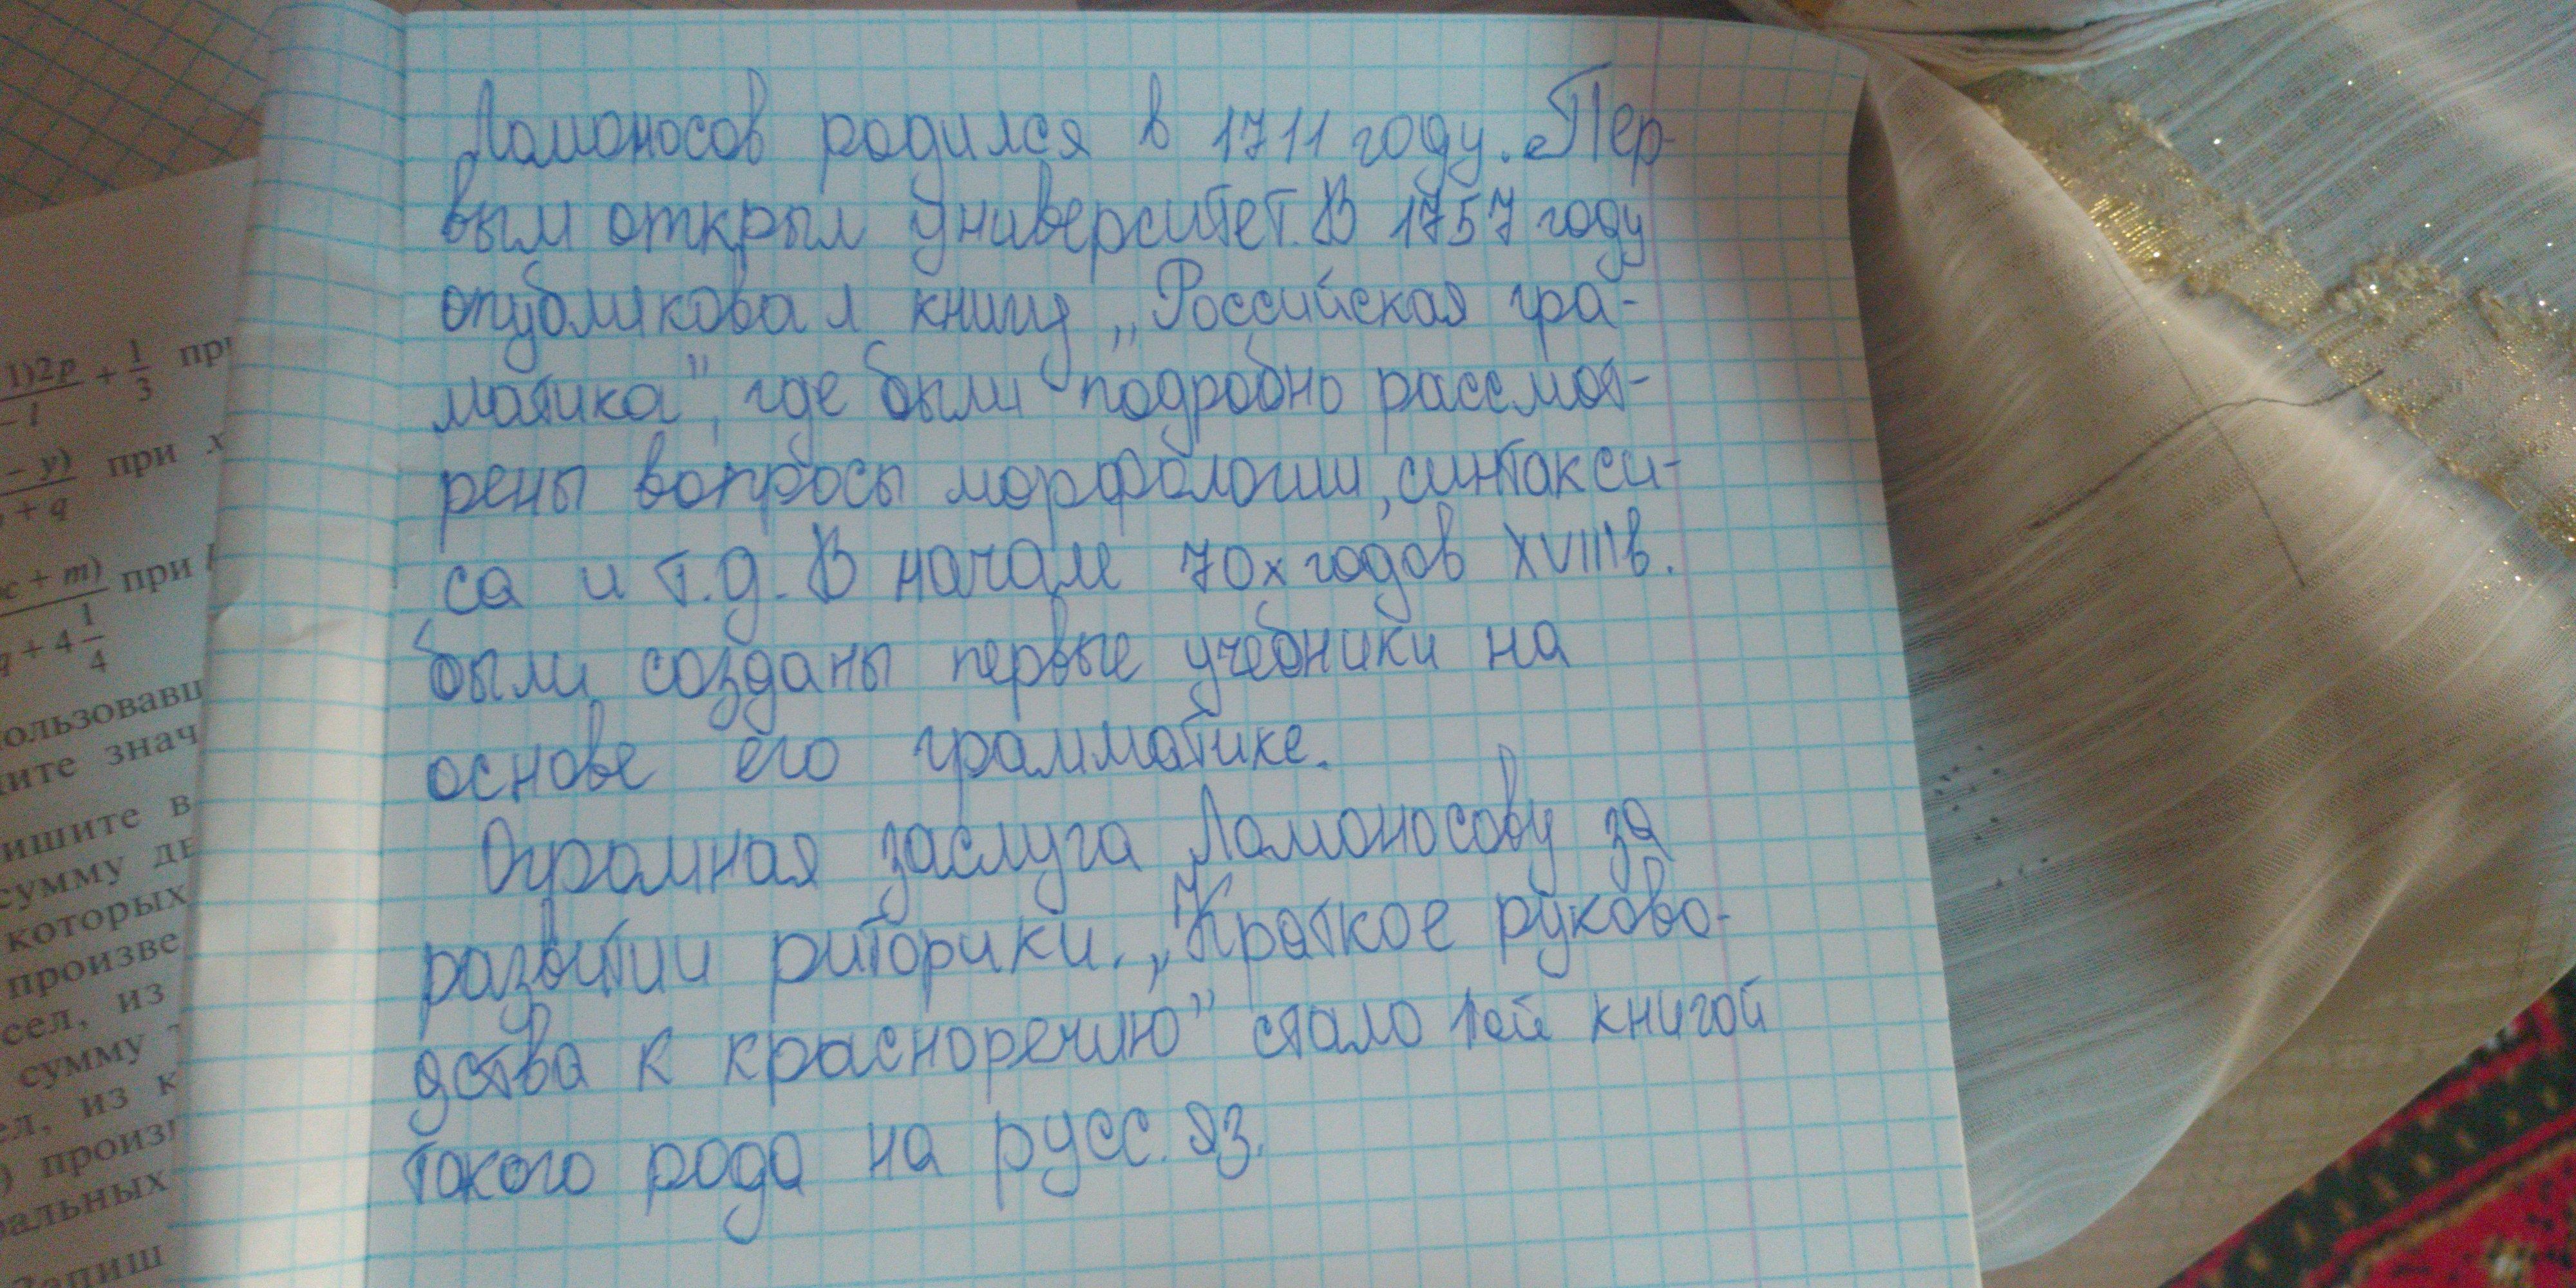 Ломоносов родился в 1711 году. Пер-
вым открыл Университет. В 1757 году
опубликовал книгу „Российская гра-
матика", где были подробно рассмот-
рены вопросы морфологии, синтакси-
са и т.д. В начале 70х годов XVIIIв.
были созданы первые учебники на
основе его грамматике.
Огромная заслуга Ломоносову за
развитии риторики. „Краткое руково-
дства к красноречию" стало той книгой
такого рода на русс. яз.
1)2p + 1/3 при
-1
- y) при x
+ q
c + m) при
q + 4 1/4
ользовавш
ите знач
ишите в
сумму дв
которых
произве
сел, из
сумму
ел, из к
) произв
альных
Запиш